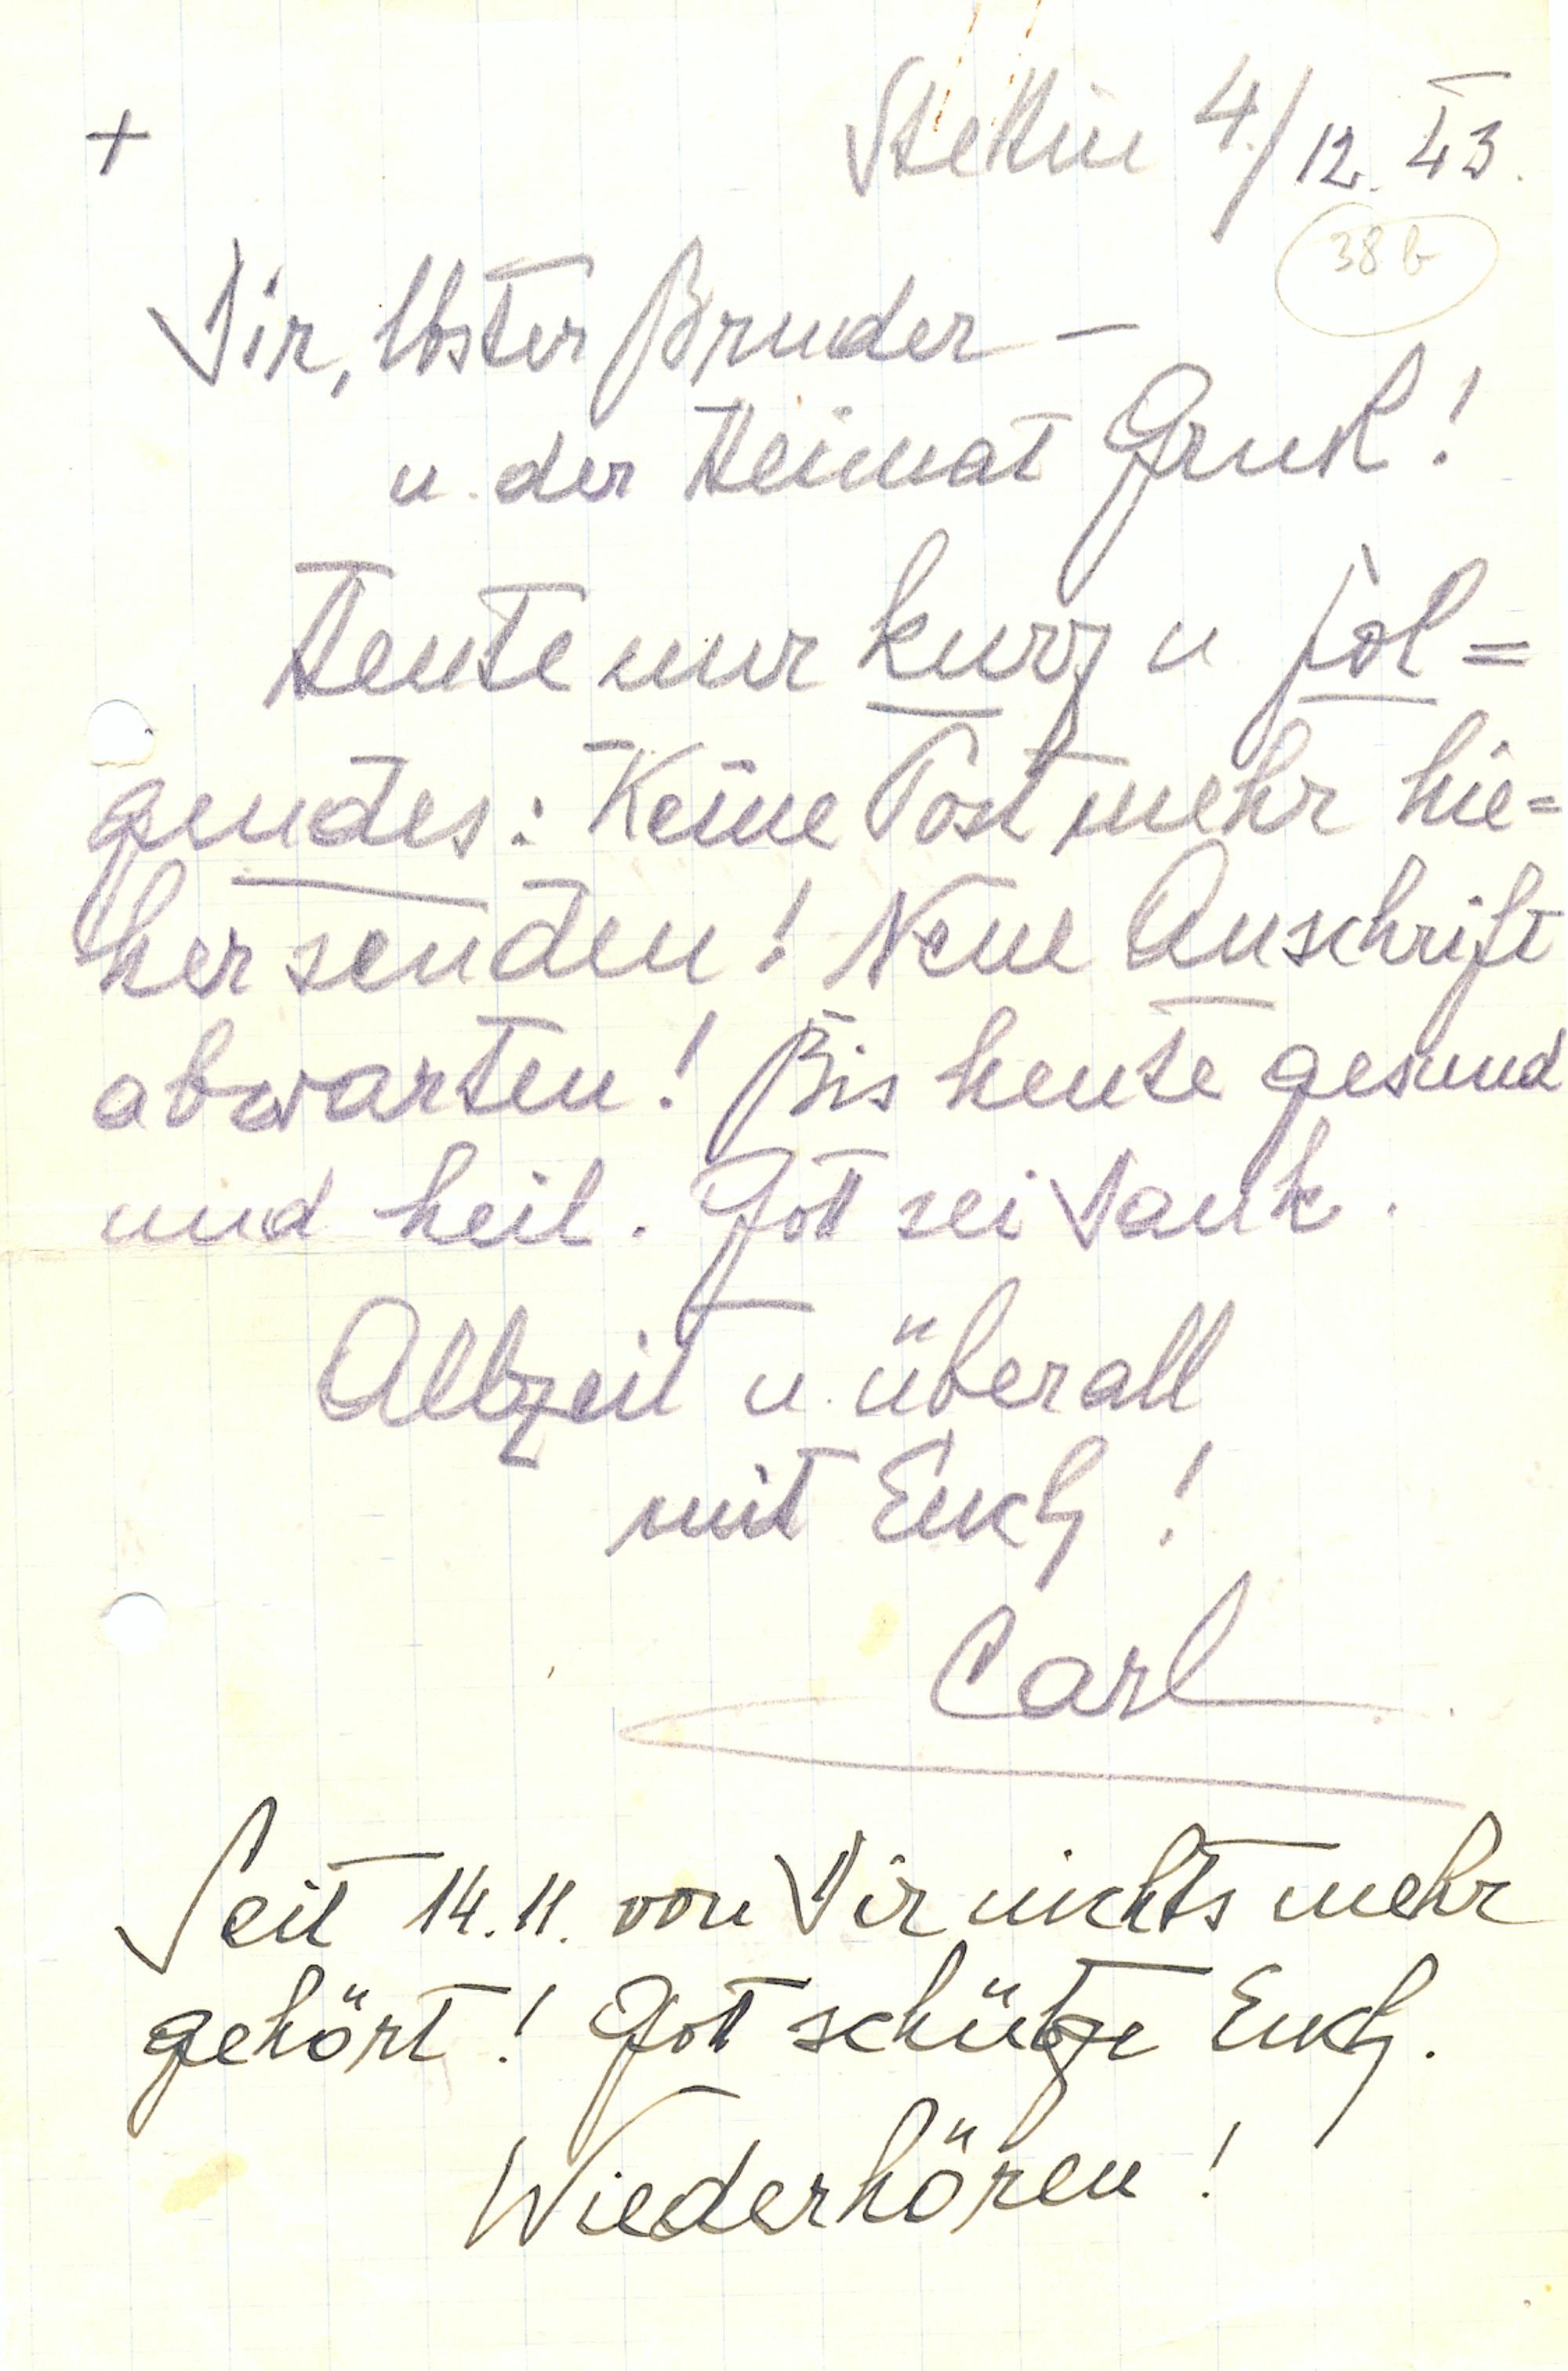 + Stettin 4./12. 43.
38 b
Dir, lbster Bruder –
u. der Heimat Gruß!
Heute nur kurz u fol=
gendes: Keine Post mehr hie=
her senden! Neue Anschrift
abwarten! Bis heute gesund
und heil. Gott sei Dank.
Allzeit u. überall
mit Euch!
Carl
Seit 14.11. von Dir nichts mehr
gehört! Gott schütze Euch.
Wiederhören!